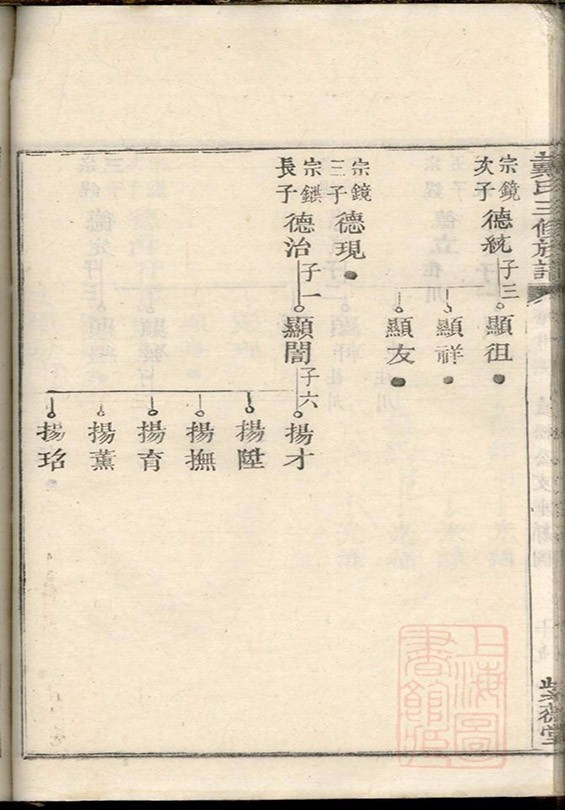 戴氏三修族譜
紫微堂
宗鏡
次子
德統
子三
顯徂
顯祥
顯友
宗鏡
三子
德現
宗鏷
長子
德治
子一
顯闇
子六
揚才
揚陞
揚撫
揚育
揚薰
揚玿
上海圖
書館藏